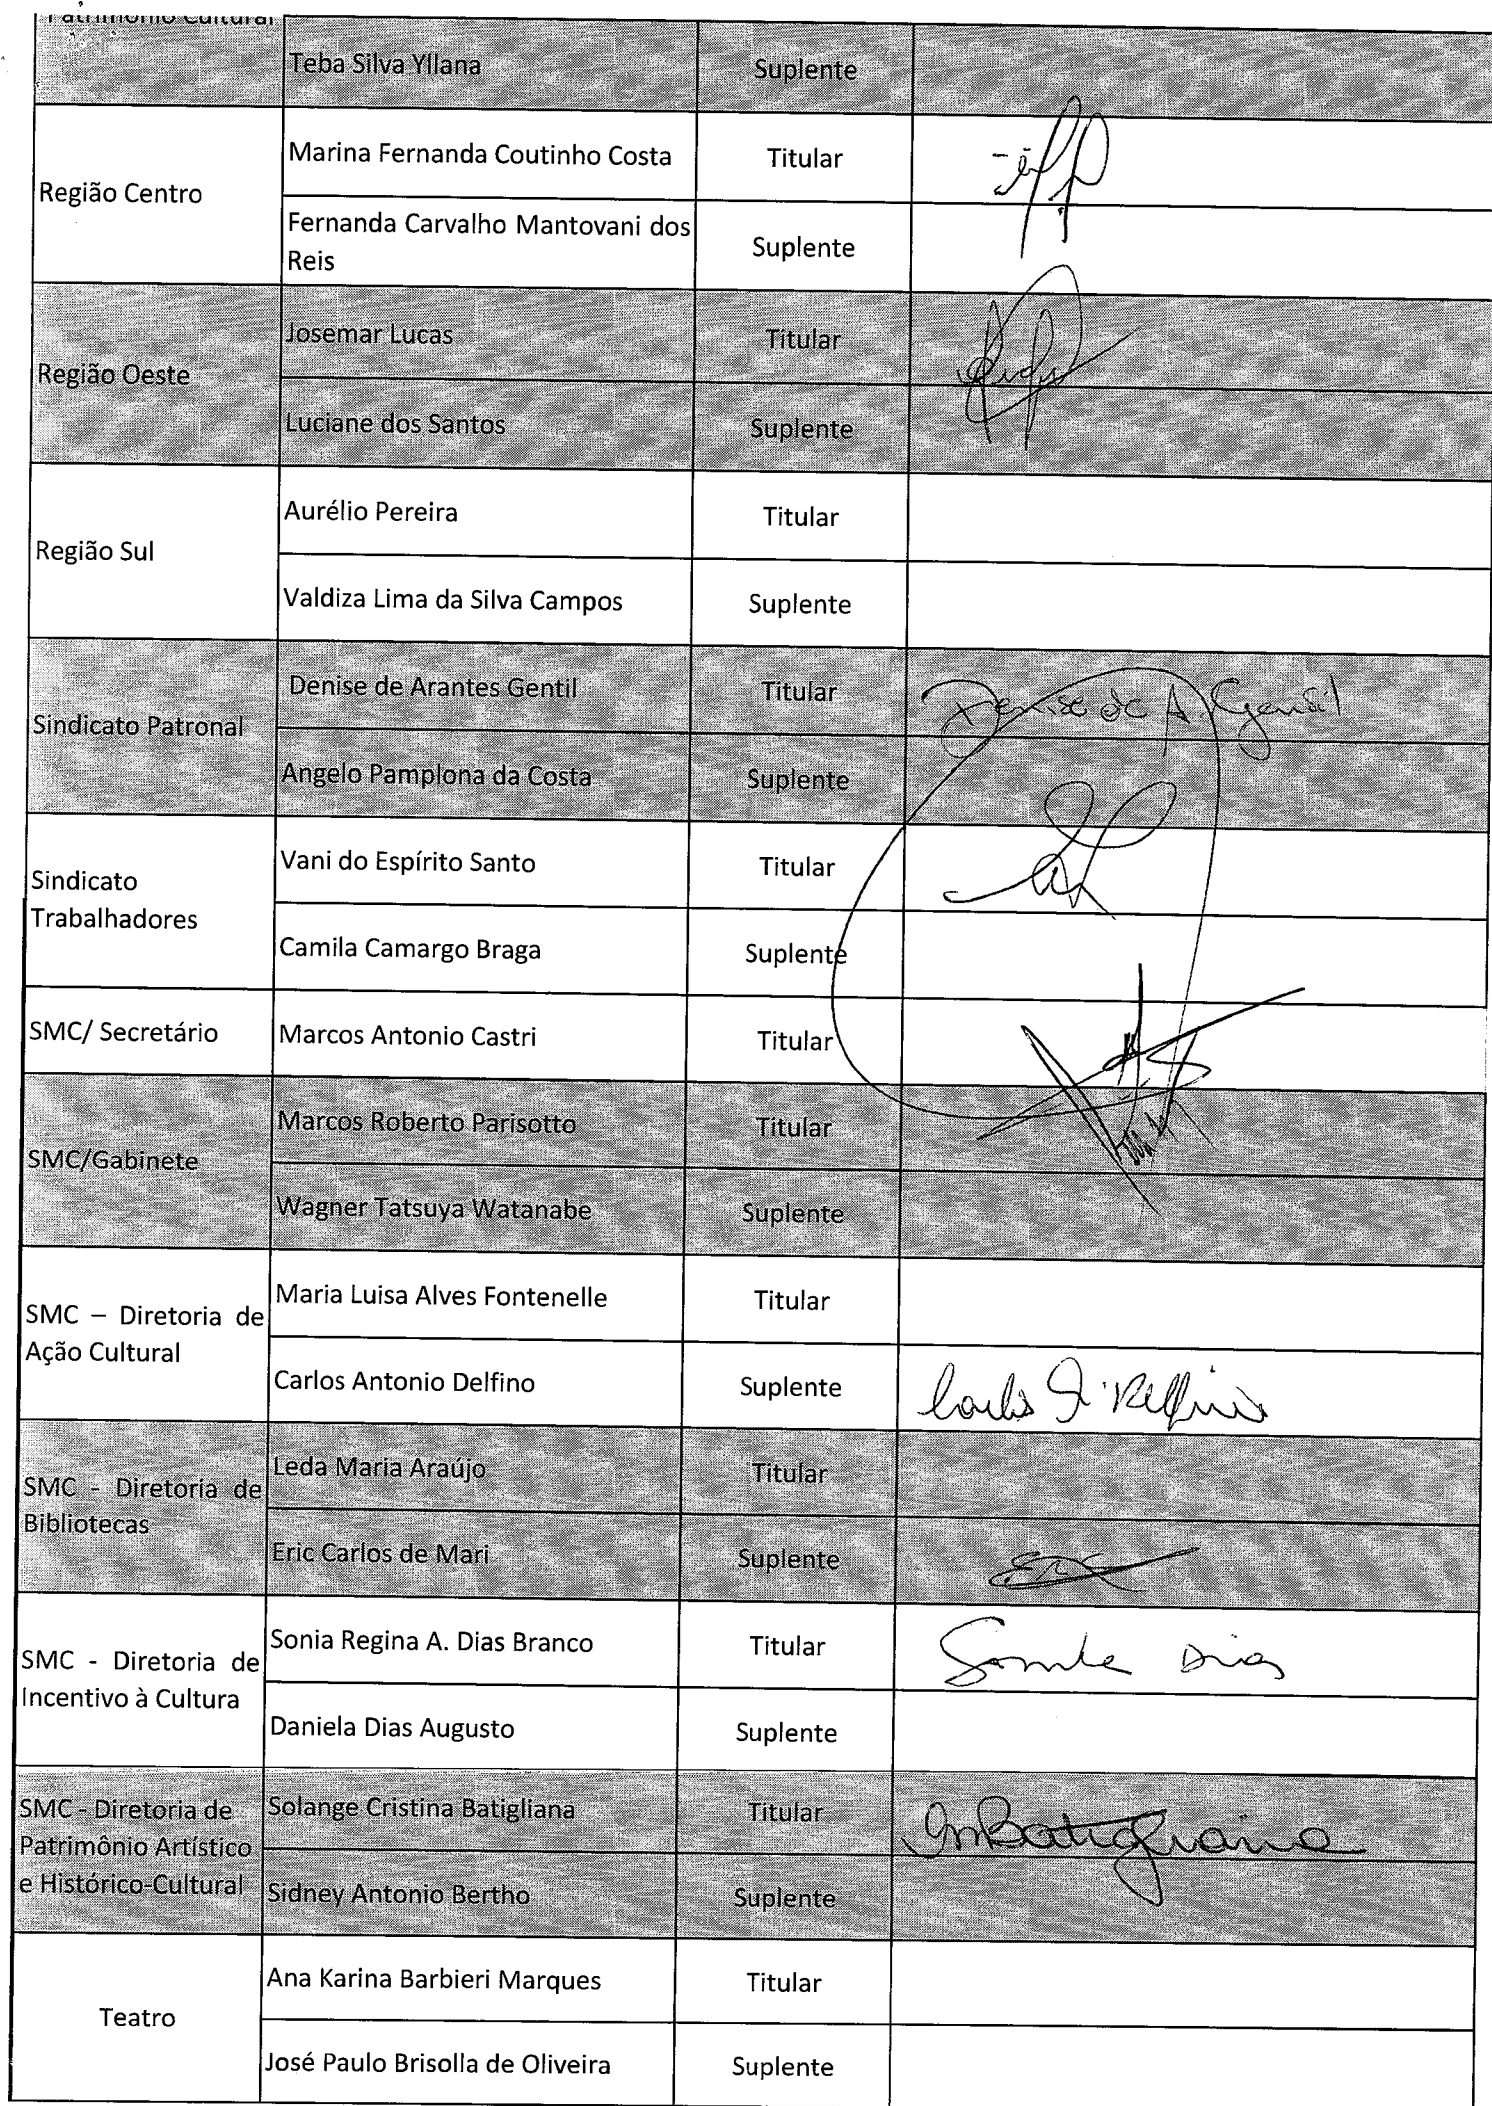 Patrimônio Cultural
Teba Silva Yllana Suplente
Região Centro
Marina Fernanda Coutinho Costa Titular
Fernanda Carvalho Mantovani dos
Reis
Suplente
Região Oeste
Josemar Lucas Titular
Luciane dos Santos Suplente
Região Sul
Aurélio Pereira Titular
Valdiza Lima da Silva Campos Suplente
Sindicato Patronal
Denise de Arantes Gentil Titular Denise de A. Gentil
Angelo Pamplona da Costa Suplente
Sindicato
Trabalhadores
Vani do Espírito Santo Titular
Camila Camargo Braga Suplente
SMC/ Secretário Marcos Antonio Castri Titular
SMC/Gabinete
Marcos Roberto Parisotto Titular
Wagner Tatsuya Watanabe Suplente
SMC – Diretoria de
Ação Cultural
Maria Luisa Alves Fontenelle Titular
Carlos Antonio Delfino Suplente
SMC - Diretoria de
Bibliotecas
Leda Maria Araújo Titular
Eric Carlos de Mari Suplente
SMC - Diretoria de
Incentivo à Cultura
Sonia Regina A. Dias Branco Titular Dias
Daniela Dias Augusto Suplente
SMC - Diretoria de
Patrimônio Artístico
e Histórico-Cultural
Solange Cristina Batigliana Titular Batigliana
Sidney Antonio Bertho Suplente
Teatro
Ana Karina Barbieri Marques Titular
José Paulo Brisolla de Oliveira Suplente